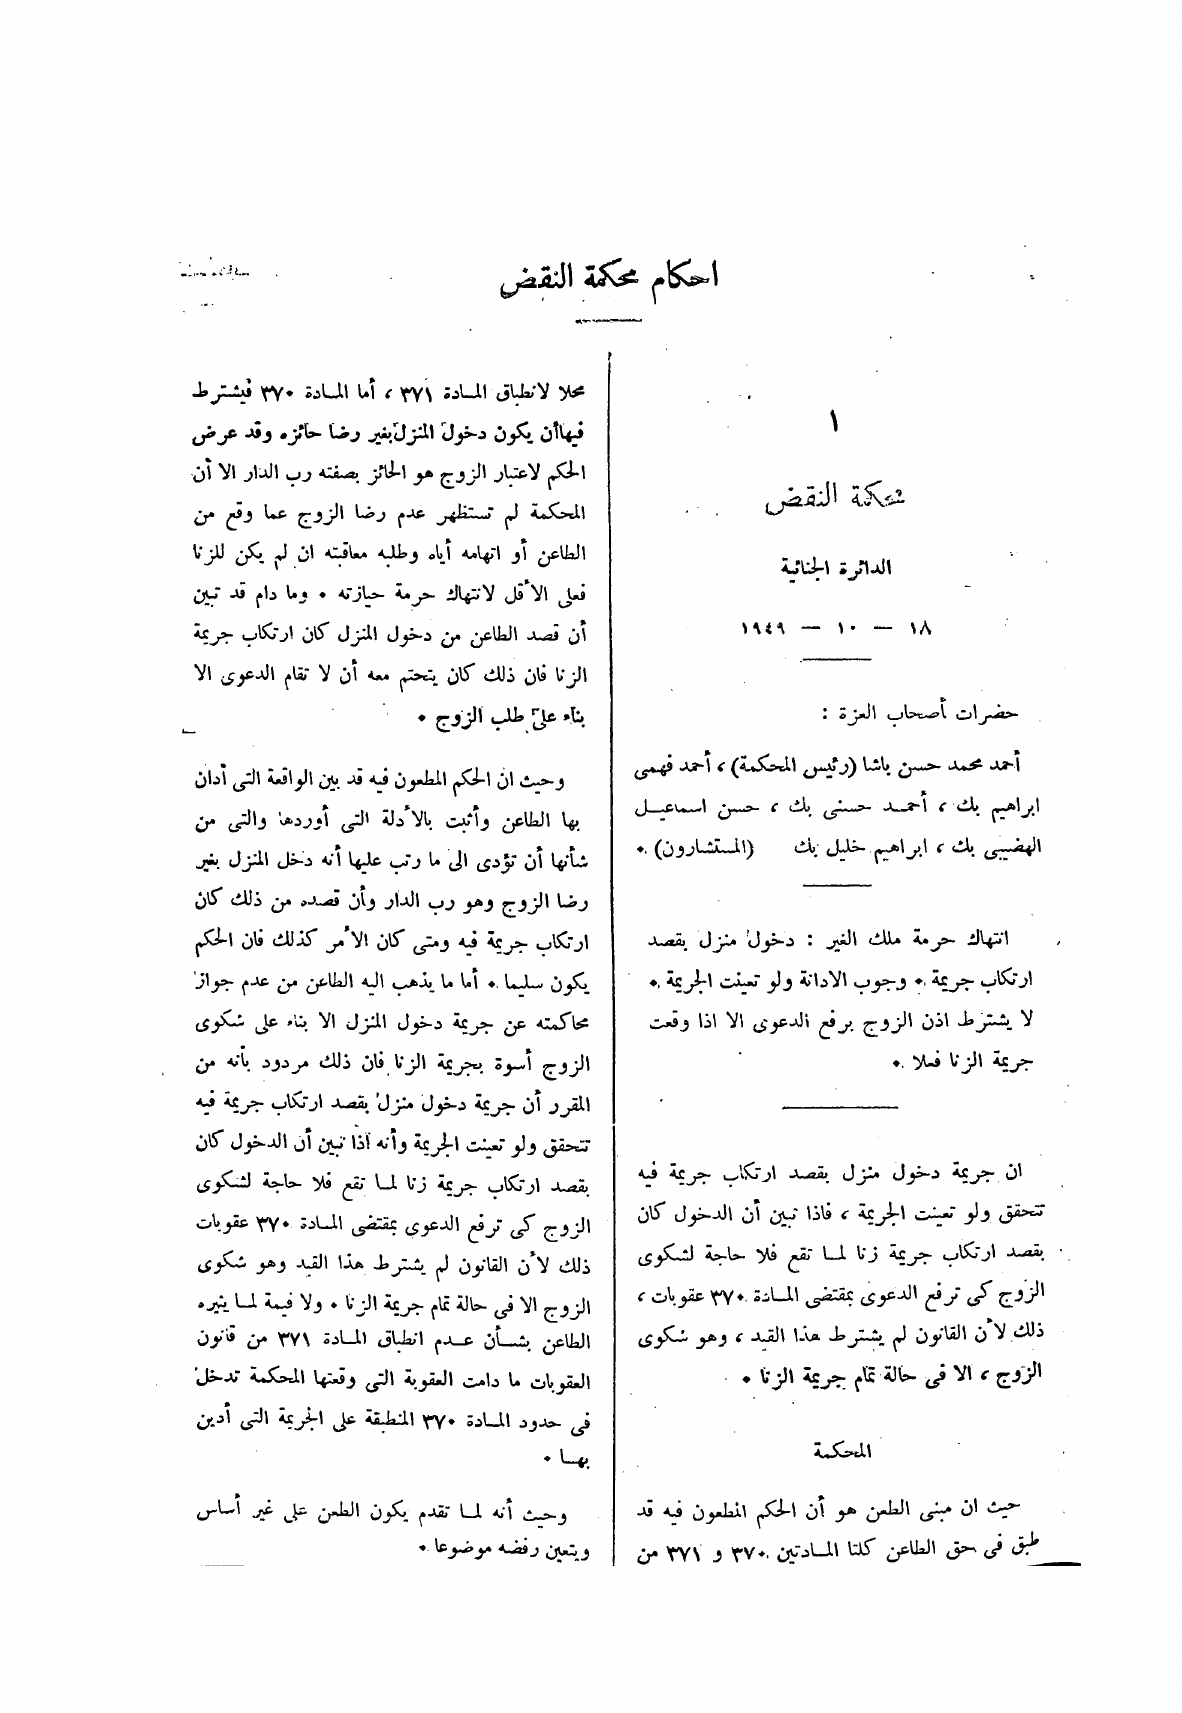 احكام محكمة النقض
١
محكمة النقض
الدائرة الجنائية
١٨ — ١٠ — ١٩٤٩
حضرات أصحاب العزة :
أحمد محمد حسن باشا (رئيس المحكمة) ، أحمد فهمى
ابراهيم بك ، أحمد حسنى بك ، حسن اسماعيل
الهضيبى بك ، ابراهيم خليل بك (المستشارون) .
انتهاك حرمة ملك الغير : دخول منزل بقصد
ارتكاب جريمة . وجوب الادانة ولو تعينت الجريمة .
لا يشترط اذن الزوج برفع الدعوى الا اذا وقعت
جريمة الزنا فعلا .
ان جريمة دخول منزل بقصد ارتكاب جريمة فيه
تتحقق ولو تعينت الجريمة ، فاذا تبين أن الدخول كان
بقصد ارتكاب جريمة زنا لما تقع فلا حاجة لشكوى
الزوج كى ترفع الدعوى بمقتضى المادة ٣٧٠ عقوبات ،
ذلك لأن القانون لم يشترط هذا القيد ، وهو شكوى
الزوج ، الا فى حالة تمام جريمة الزنا .
المحكمة
حيث ان مبنى الطعن هو أن الحكم المطعون فيه قد
طبق فى حق الطاعن كلتا المادتين ٣٧٠ و ٣٧١ من
محلا لانطباق المادة ٣٧١ ، أما المادة ٣٧٠ فيشترط
فيهاأن يكون دخول المنزل بغير رضا حائزه وقد عرض
الحكم لاعتبار الزوج هو الحائز بصفته رب الدار الا أن
المحكمة لم تستظهر عدم رضا الزوج عما وقع من
الطاعن أو اتهامه أياه وطلبه معاقبته ان لم يكن للزنا
فعلى الأقل لانتهاك حرمة حيازته . وما دام قد تبين
أن قصد الطاعن من دخول المنزل كان ارتكاب جريمة
الزنا فان ذلك كان يتحتم معه أن لا تقام الدعوى الا
بناء على طلب الزوج .
وحيث ان الحكم المطعون فيه قد بين الواقعة التى أدان
بها الطاعن وأثبت بالأدلة التى أوردها والتى من
شأنها أن تؤدى الى ما رتب عليها أنه دخل المنزل بغير
رضا الزوج وهو رب الدار وأن قصده من ذلك كان
ارتكاب جريمة فيه ومتى كان الأمر كذلك فان الحكم
يكون سليما . أما ما يذهب اليه الطاعن من عدم جواز
محاكمته عن جريمة دخول المنزل الا بناء على شكوى
الزوج أسوة بجريمة الزنا فان ذلك مردود بأنه من
المقرر أن جريمة دخول منزل بقصد ارتكاب جريمة فيه
تتحقق ولو تعينت الجريمة وأنه اذا تبين أن الدخول كان
بقصد ارتكاب جريمة زنا لما تقع فلا حاجة لشكوى
الزوج كى ترفع الدعوى بمقتضى المادة ٣٧٠ عقوبات
ذلك لأن القانون لم يشترط هذا القيد وهو شكوى
الزوج الا فى حالة تمام جريمة الزنا . ولا قيمة لما يثيره
الطاعن بشأن عدم انطباق المادة ٣٧١ من قانون
العقوبات ما دامت العقوبة التى وقعتها المحكمة تدخل
فى حدود المادة ٣٧٠ المنطبقة على الجريمة التى أدين
بها .
وحيث أنه لما تقدم يكون الطعن على غير أساس
ويتعين رفضه موضوعا .